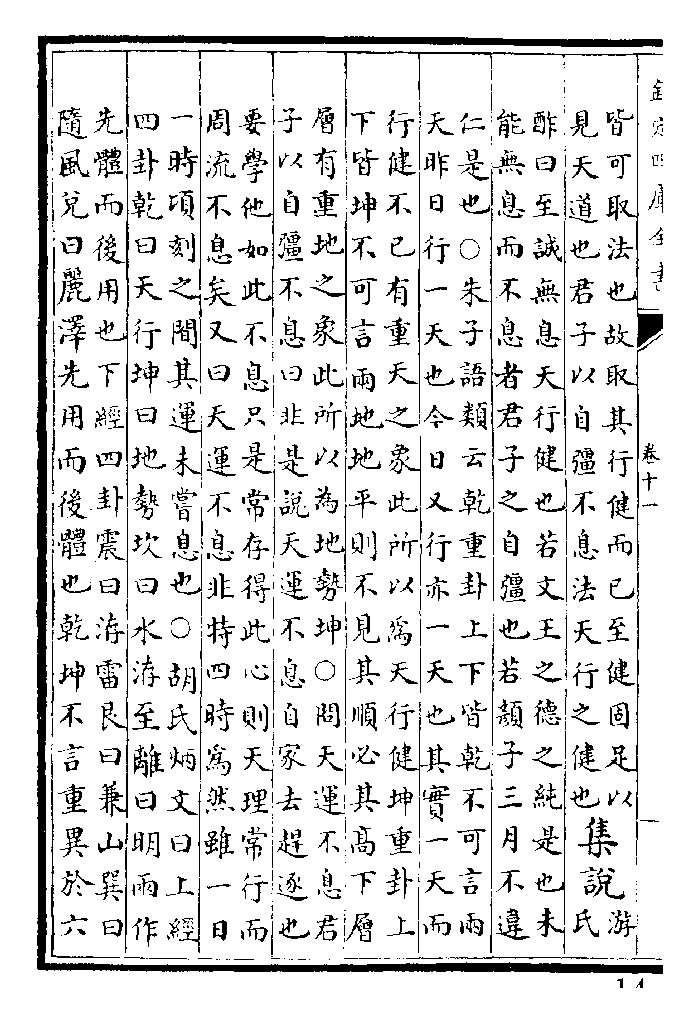 欽定四庫全書 卷十一 一
皆可取法也故取其行健而已至健固足以
見天道也君子以自彊不息法天行之健也
集說
游
氏
酢曰至誠無息天行健也若文王之德之純是也未
能無息而不息者君子之自彊也若顏子三月不違
仁是也○朱子語類云乾重卦上下皆乾不可言兩
天昨日行一天也今日又行亦一天也其實一天而
行健不已有重天之象此所以爲天行健坤重卦上
下皆坤不可言兩地地平則不見其順必其高下層
層有重地之象此所以為地勢坤○問天運不息君
子以自彊不息曰非是說天運不息自家去趕逐也
要學他如此不息只是常存得此心則天理常行而
周流不息矣又曰天運不息非特四時爲然雖一日
一時頃刻之間其運未嘗息也○胡氏炳文曰上經
四卦乾曰天行坤曰地勢坎曰水洊至離曰明兩作
先體而後用也下經四卦震曰洊雷艮曰兼山巽曰
隨風兌曰麗澤先用而後體也乾坤不言重異於六
14